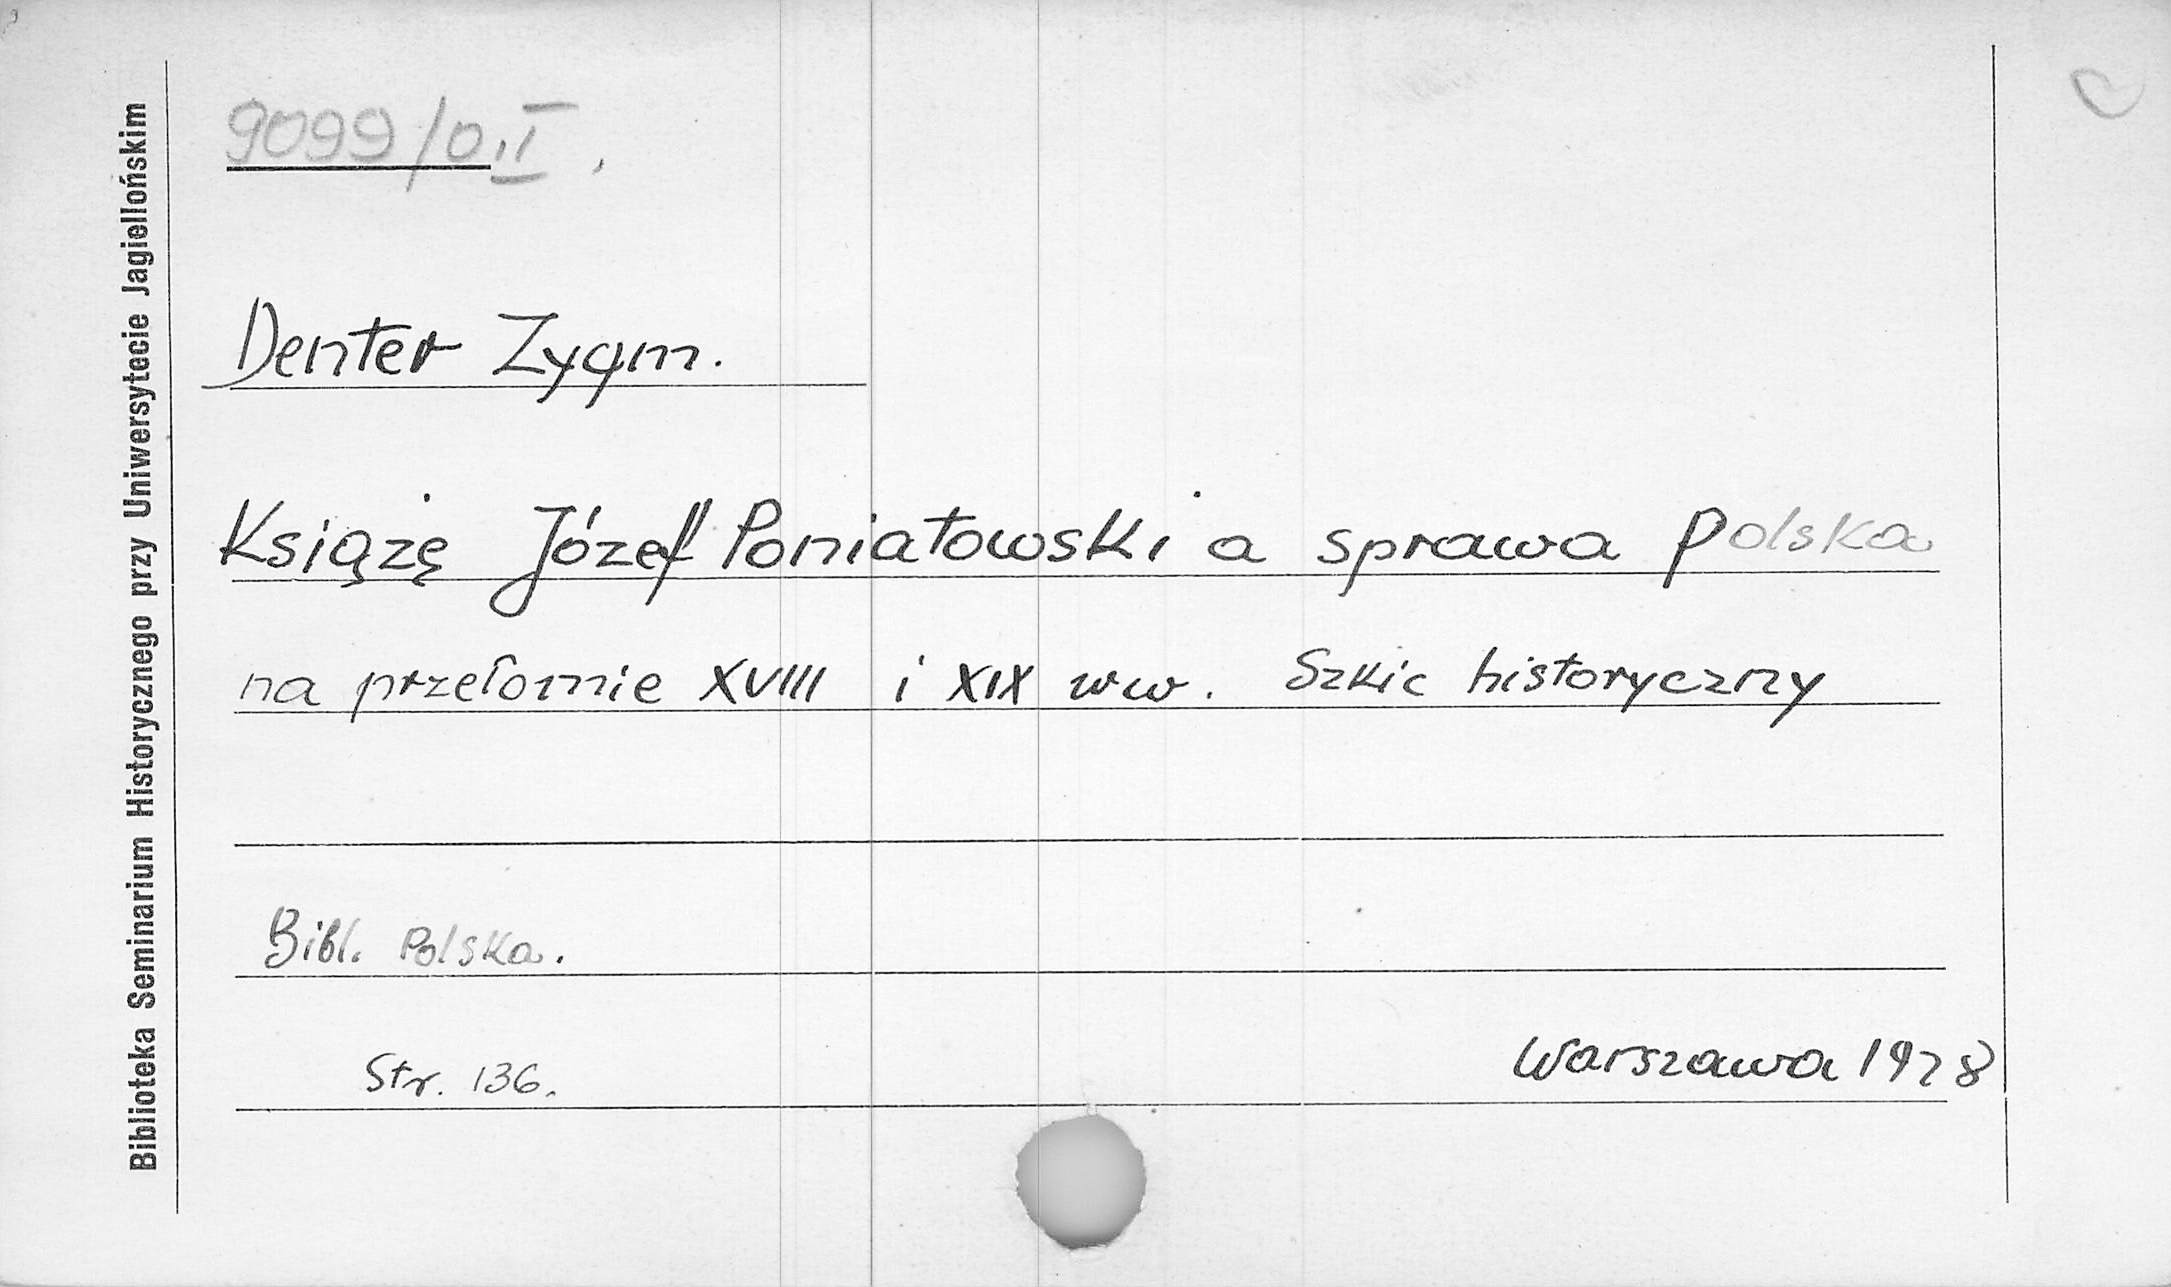 9099/0.I.
Denter Zygm.
Książę Józef Poniatowski a sprawa polska
na przełomie XVIII i XIX ww. Szkic historyczny
Bibl. Polska.
Str. 136.
Warszawa 1928
Biblioteka Seminarium Historycznego przy Uniwersytecie Jagiellońskim